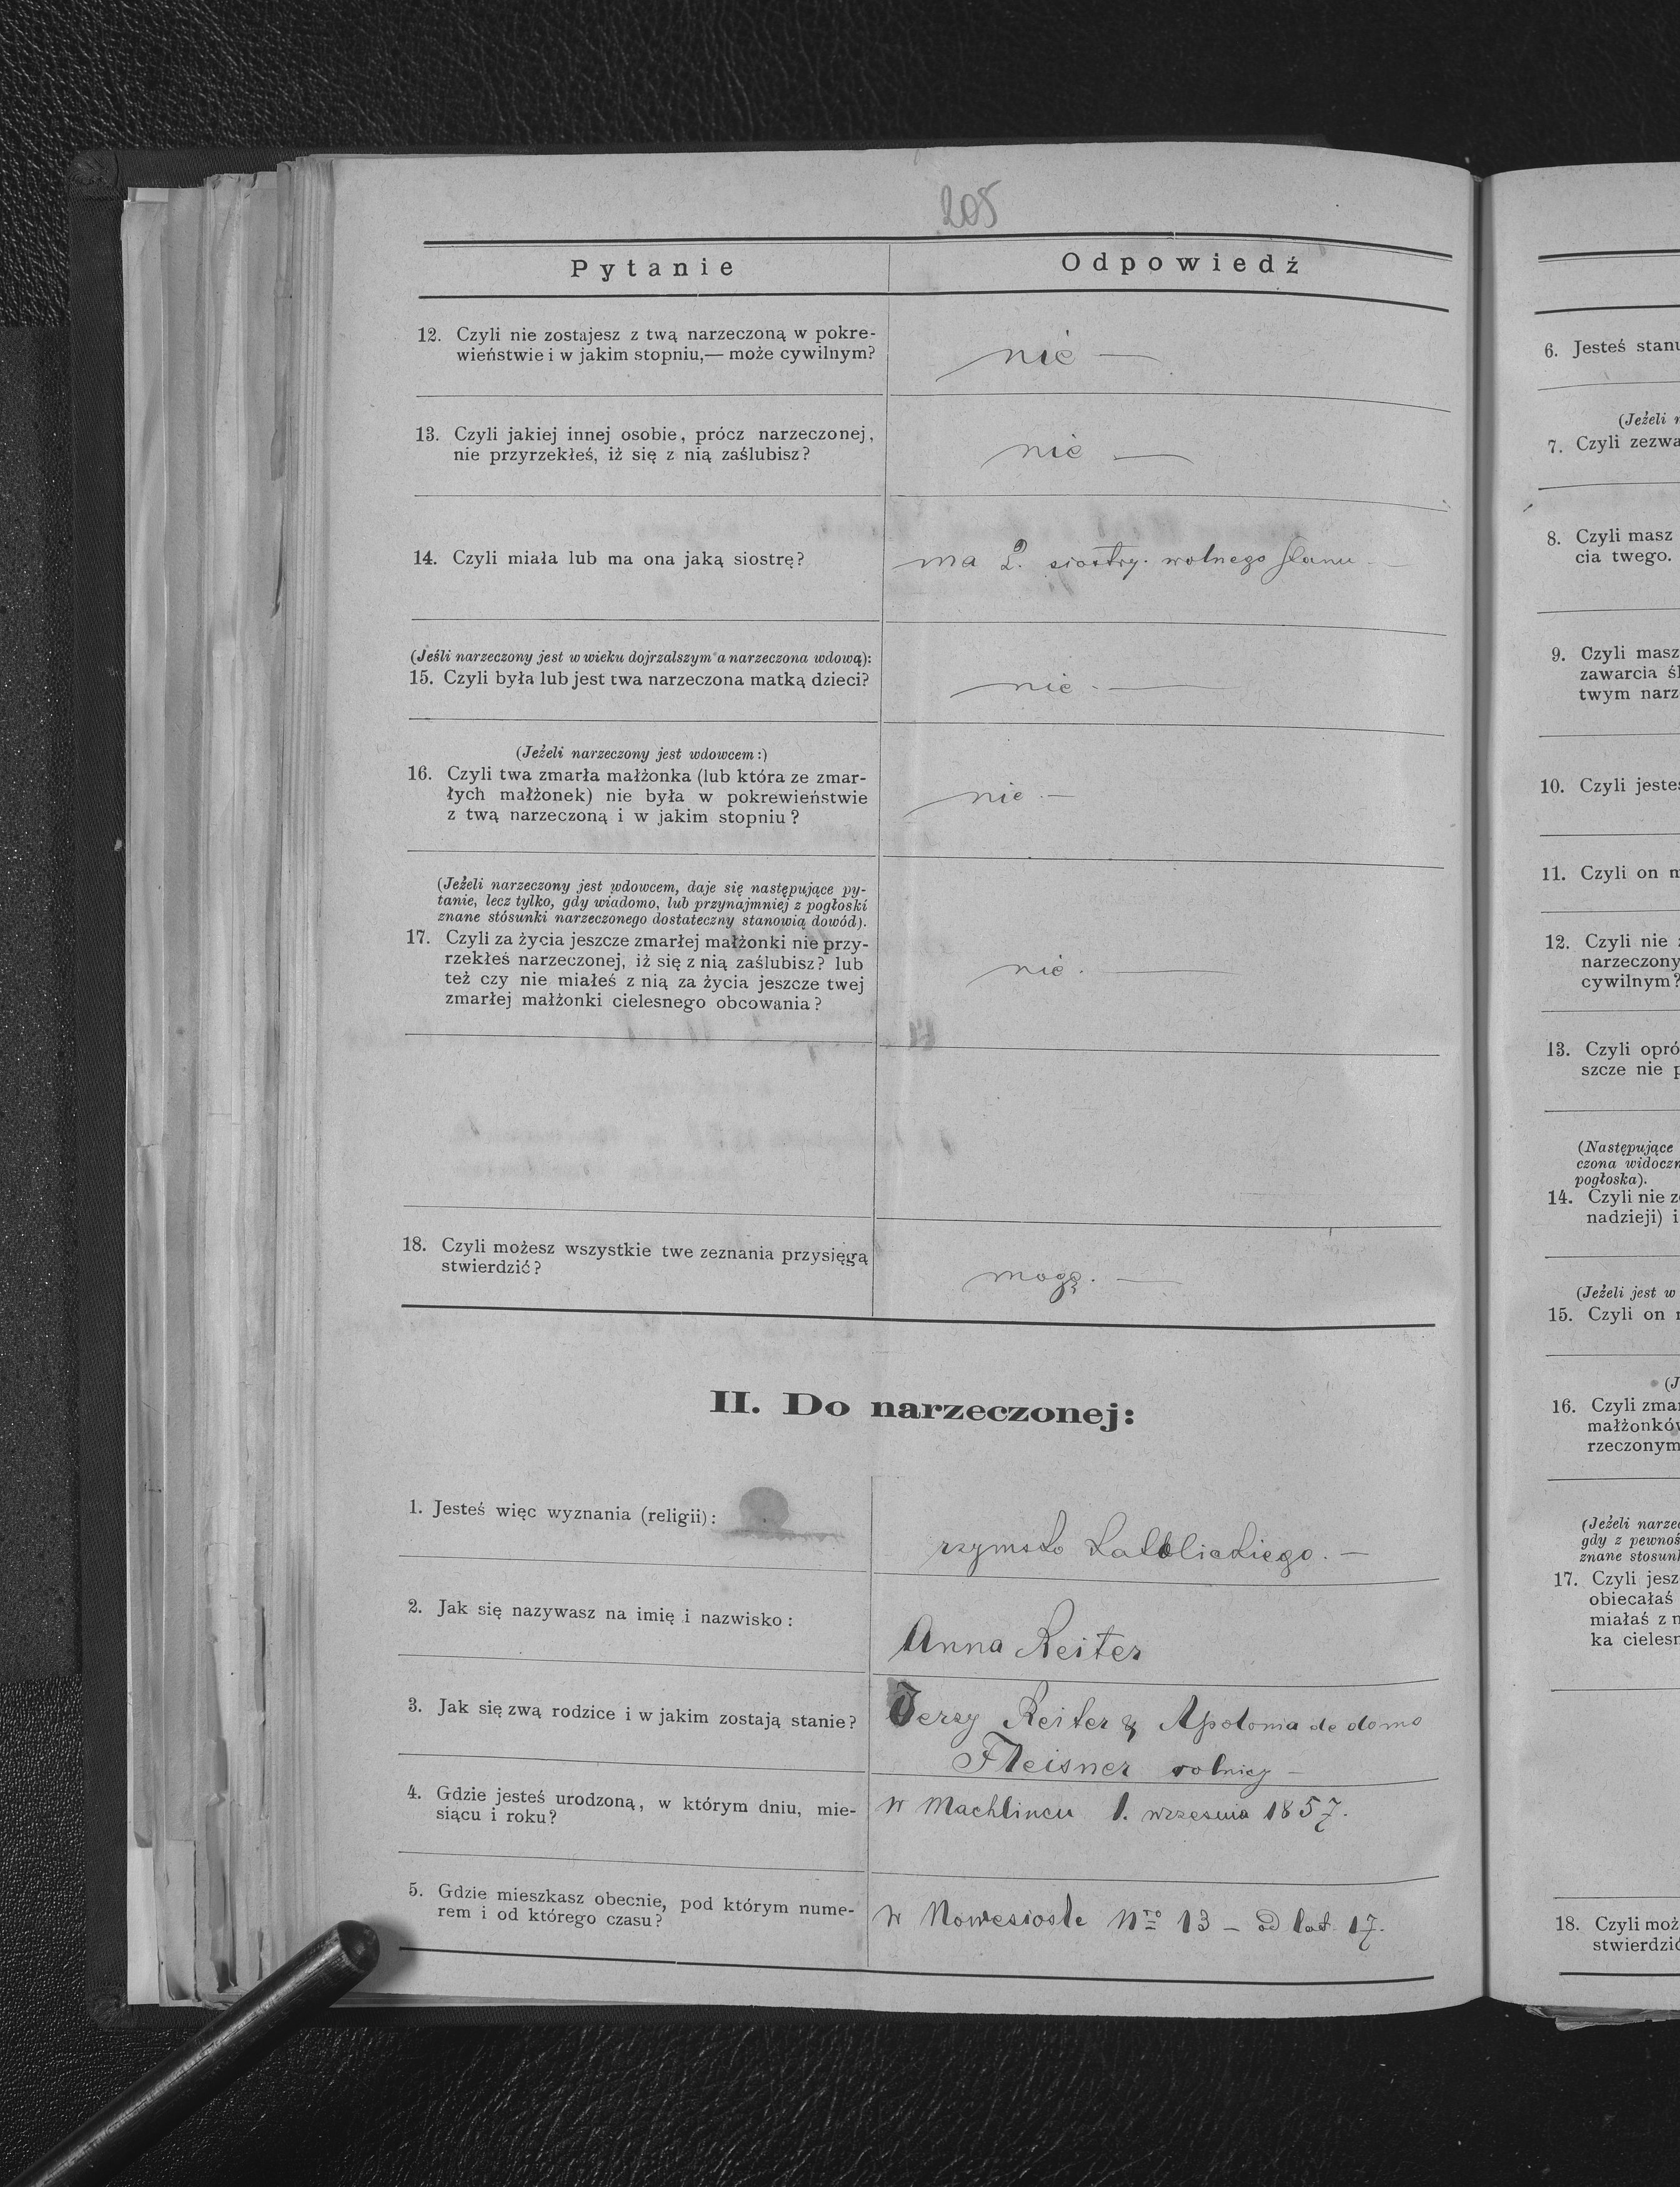 205
Pytanie
Odpowiedź
12. Czyli nie zostajesz z twą narzeczoną w pokre-
wieństwie i w jakim stopniu,— może cywilnym?
nie —
13. Czyli jakiej innej osobie, prócz narzeczonej,
nie przyrzekłeś, iż się z nią zaślubisz?
nie —
14. Czyli miała lub ma ona jaką siostrę?
ma 2. siostry. wolnego stanu —
(Jeśli narzeczony jest w wieku dojrzalszym a narzeczona wdową):
15. Czyli była lub jest twa narzeczona matką dzieci?
nie. —
(Jeżeli narzeczony jest wdowcem:)
16. Czyli twa zmarła małżonka (lub która ze zmar-
łych małżonek) nie była w pokrewieństwie
z twą narzeczoną i w jakim stopniu?
nie. —
(Jeżeli narzeczony jest wdowcem, daje się następujące py-
tanie, lecz tylko, gdy wiadomo, lub przynajmniej z pogłoski
znane stósunki narzeczonego dostateczny stanowią dowód).
17. Czyli za życia jeszcze zmarłej małżonki nie przy-
rzekłeś narzeczonej, iż się z nią zaślubisz? lub
też czy nie miałeś z nią za życia jeszcze twej
zmarłej małżonki cielesnego obcowania?
nie. —
18. Czyli możesz wszystkie twe zeznania przysięgą
stwierdzić?
mogę. —
II. Do narzeczonej:
1. Jesteś więc wyznania (religii):
rzymsko katolickiego. —
2. Jak się nazywasz na imię i nazwisko:
Anna Reiter
3. Jak się zwą rodzice i w jakim zostają stanie?
Jerzy Reiter & Apolonia de domo
Fleisner rolnicy —
4. Gdzie jesteś urodzoną, w którym dniu, mie-
siącu i roku?
w Machlincu 1. września 1857.
5. Gdzie mieszkasz obecnie, pod którym nume-
rem i od którego czasu?
w Nowesiole Nro 13 — od lat 17.
6. Jesteś stanu
(Jeżeli
7. Czyli
8. Czyli masz
cia twego.
9. Czyli masz
zawarcia
twym
10. Czyli
11. Czyli on
12. Czyli nie
narzeczony
cywilnym?
13. Czyli
szcze nie
(Następujące
pogłoska).
14. Czyli nie
nadzieji) i
(Jeżeli jest w
15. Czyli on
16. Czyli
(Jeżeli
gdy z
znane
17. Czyli
obiecałaś
miałaś z
ka
18. Czyli